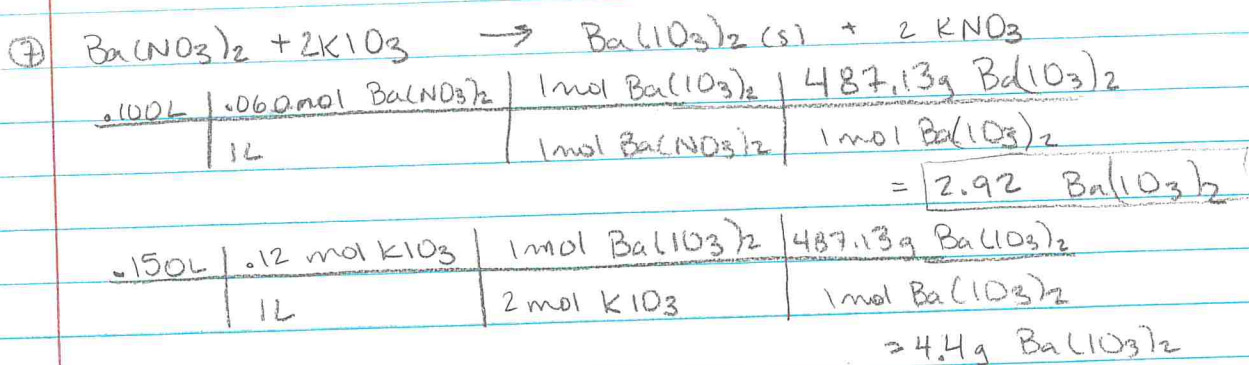 ⑦ Ba(NO3)2 + 2KIO3 → Ba(IO3)2 (s) + 2 KNO3
.100L | .060mol Ba(NO3)2 | 1mol Ba(IO3)2 | 487.13g Ba(IO3)2
1L | 1mol Ba(NO3)2 | 1mol Ba(IO3)2
= 2.92 Ba(IO3)2
.150L | .12 mol KIO3 | 1mol Ba(IO3)2 | 487.13g Ba(IO3)2
1L | 2 mol KIO3 | 1mol Ba(IO3)2
= 4.4g Ba(IO3)2